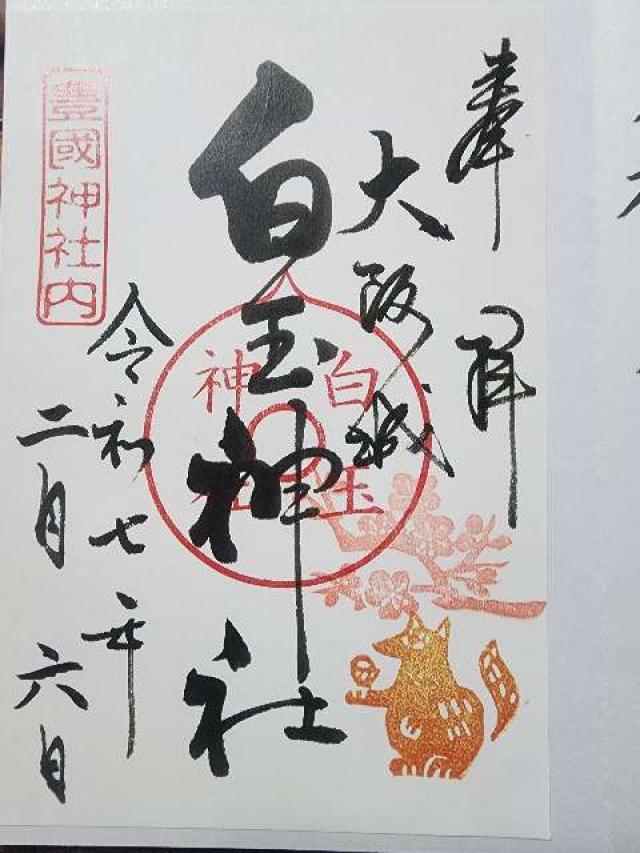 奉拝
大阪城
白玉神社
白玉神社
令和七年
二月六日
豊國神社内